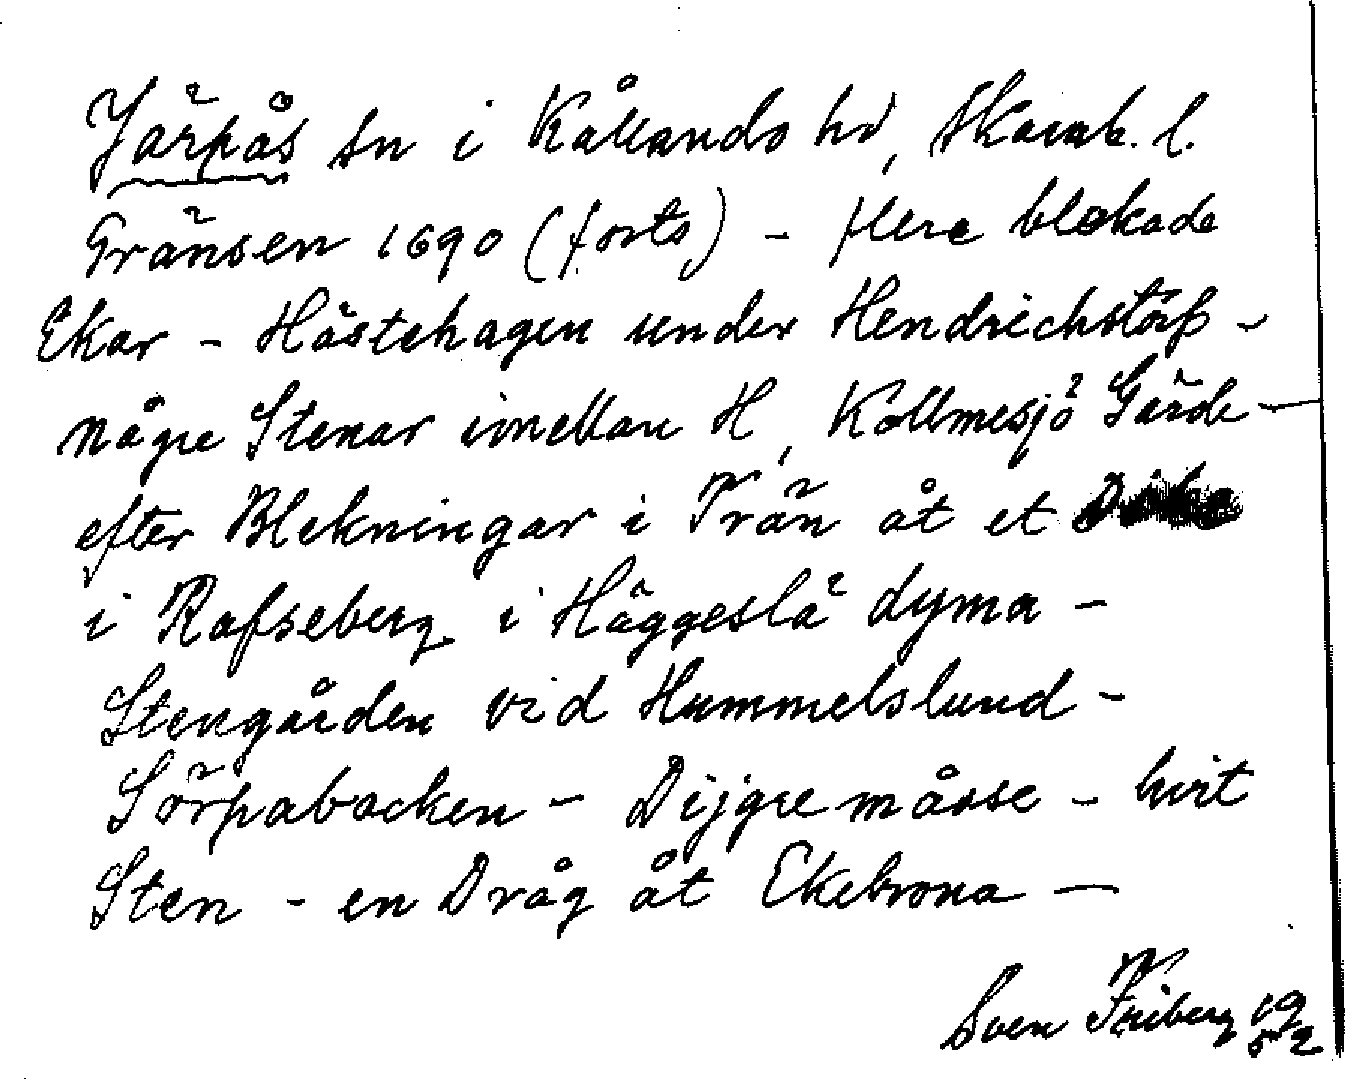 Järpås sn i Kållands hd, Skarab. l.
Gränsen 1690 (forts) - flere blekade
Ekar - Hästehagen under Hendrichstörp -
någre Stenar imellan H, Kollmesjö Gärde -
efter Blekningar i Trän åt et
i Rafseberg i Häggeslä dyma -
Stengården vid Hummelslund -
Sörpabacken - Dijgre måsse - hvit
Sten - en Dråg åt Ekebrona -
Sven Friberg 19
52